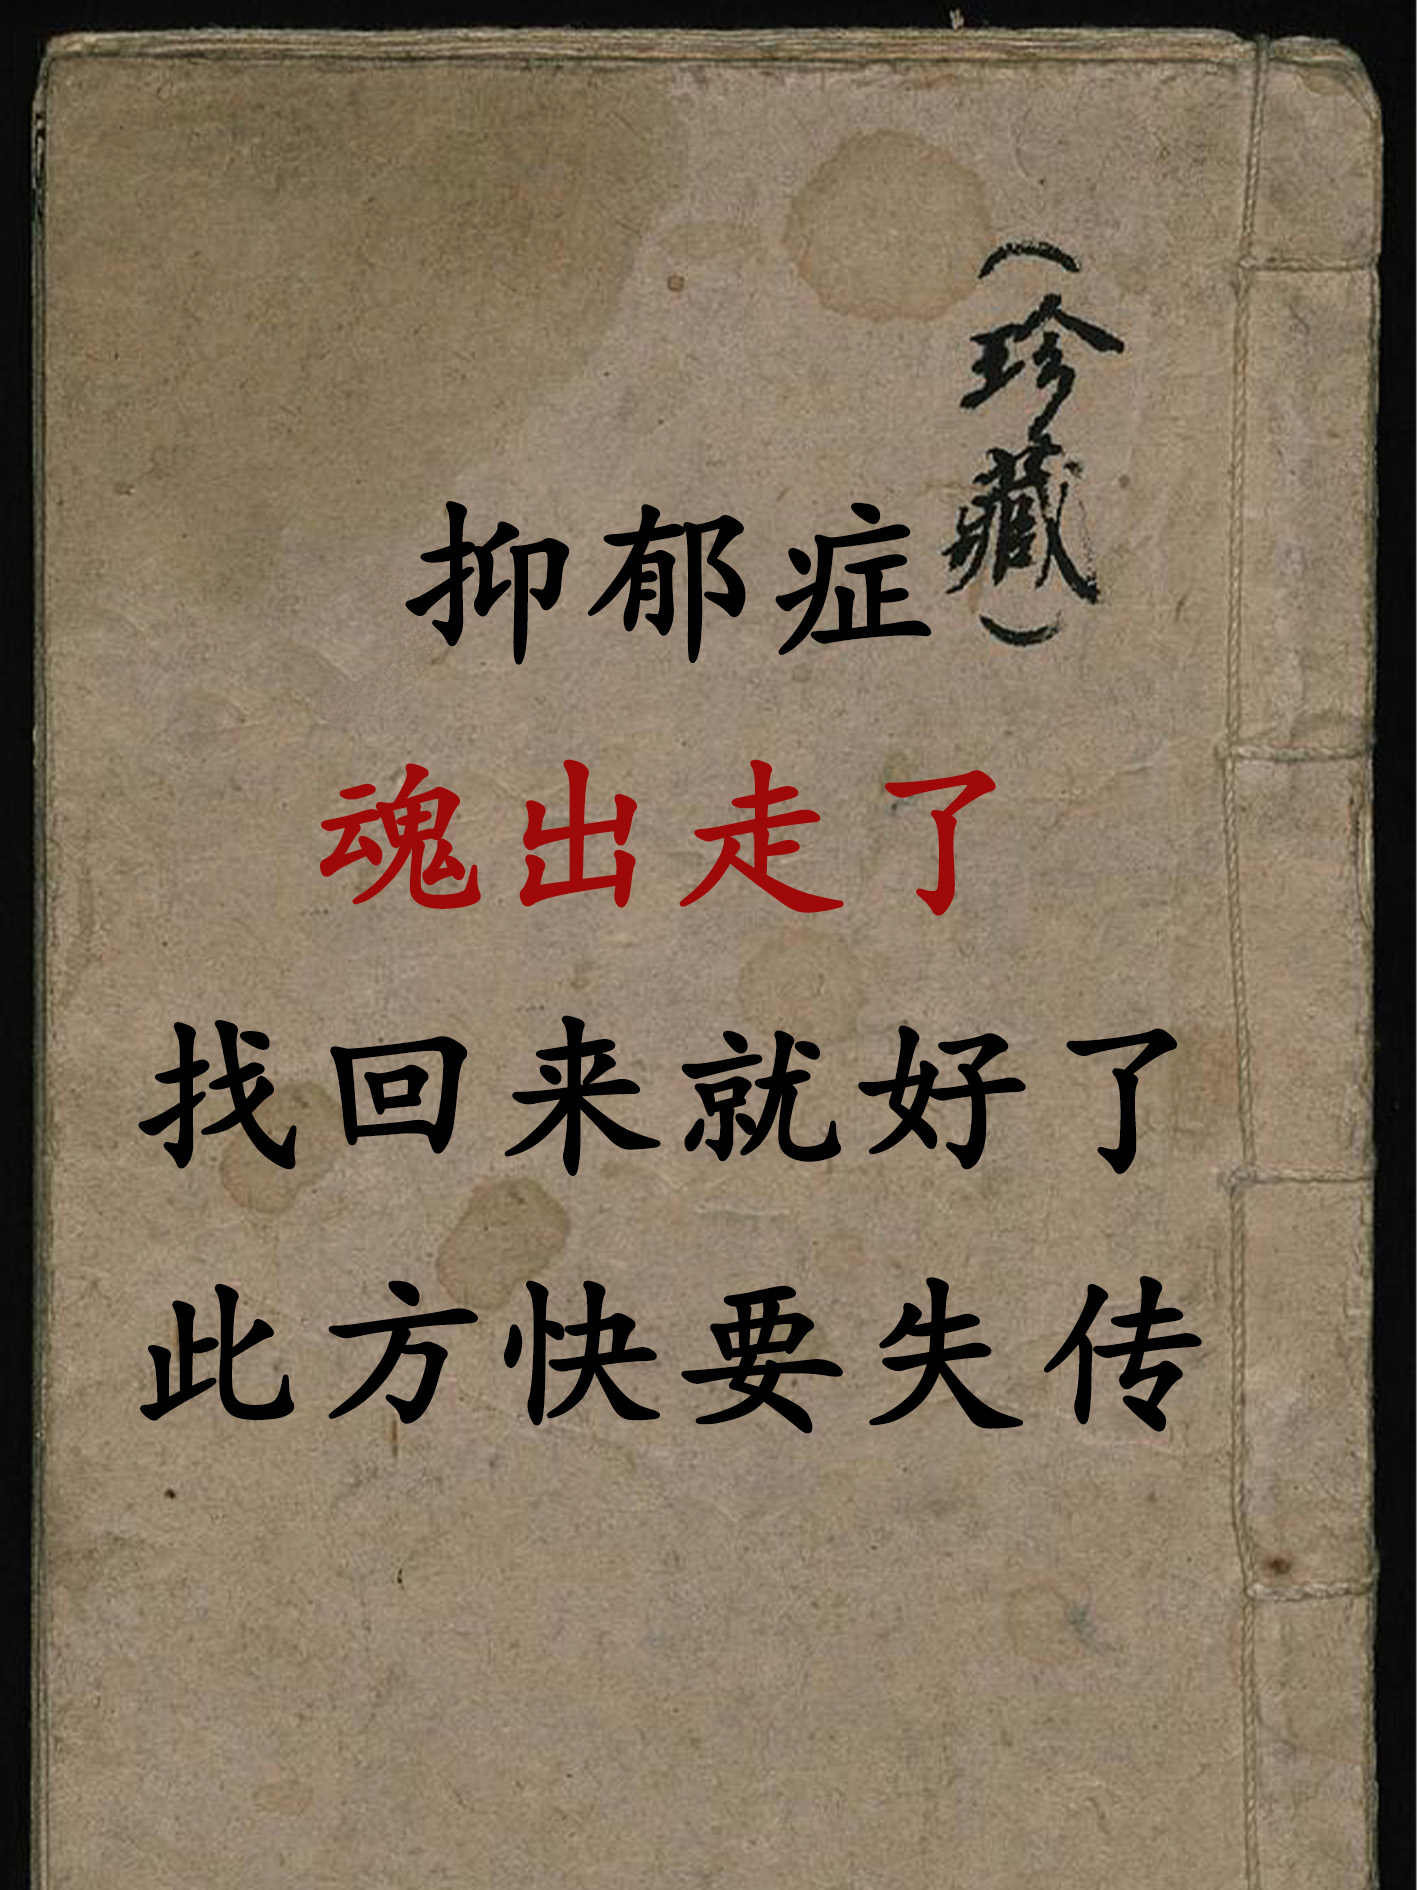 （珍藏）
抑郁症
魂出走了
找回来就好了
此方快要失传